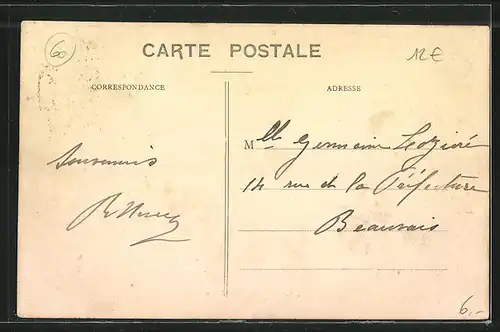 60
CARTE POSTALE
12€
CORRESPONDANCE
ADRESSE
Mlle Germaine
Souvenirs
14 rue de la Préfecture
Beauvais
6,-